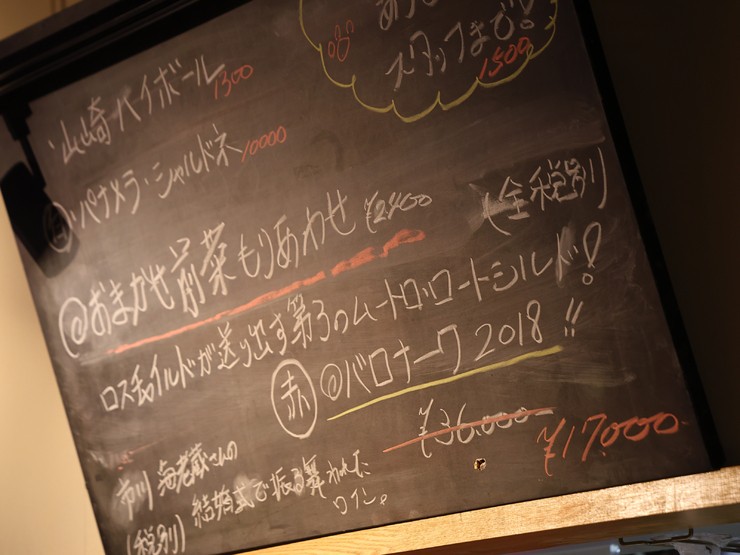 スタッフまで!
1500
・山崎ハイボール 1300
・パナメラ・シャルドネ 10000
@おまかせ前菜もりあわせ ¥2400
(全税別)
ロスチャイルドが送り出す第3のムートン・ロートシルド!
赤 @バロナーク 2018!!
¥36.000 ¥17.000
市川 海老蔵さんの
(税別) 結婚式で振る舞われた
ワイン。